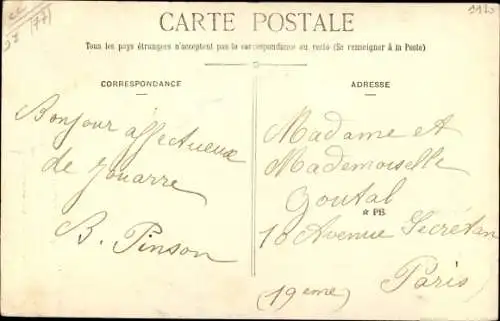 CARTE POSTALE
Tous les pays étrangers n'acceptent pas la correspondance au verso (Se renseigner à la Poste)
CORRESPONDANCE
Bonjour affectueux
de Jouarre
B. Pinson
ADRESSE
Madame et
Mademoiselle
Goutal
* PB
10 Avenue Secrétan
Paris
(19eme)
(77)